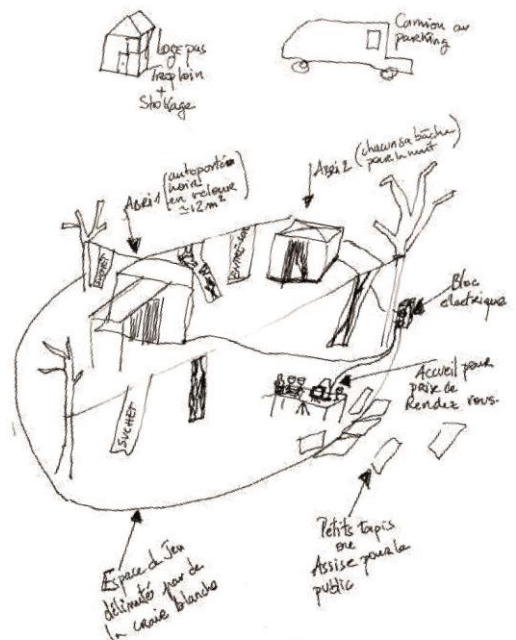 Loge pas
trop loin
+
Stockage
Camion au
parking
Abri 1 (autoportée
noire
en velours
≈12m²
Abri 2 (chacun sa bâche
pour la nuit)
Bloc
électrique
Accueil pour
prise de
Rendez vous.
SUCHET
Petits tapis
ou
Assise pour le
public
Espace de Jeu
délimité par de
la craie blanche